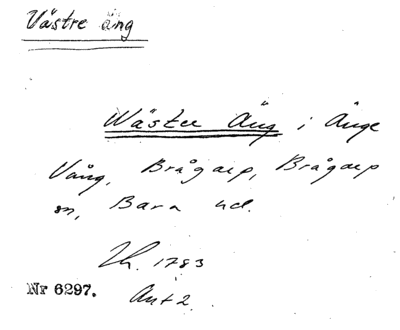 Västre äng
Wästre Äng i Änge
Vång, Brågarp, Brågarp
sn, Bara hd.
Lh. 1783
Nr 6297. Akt 2.